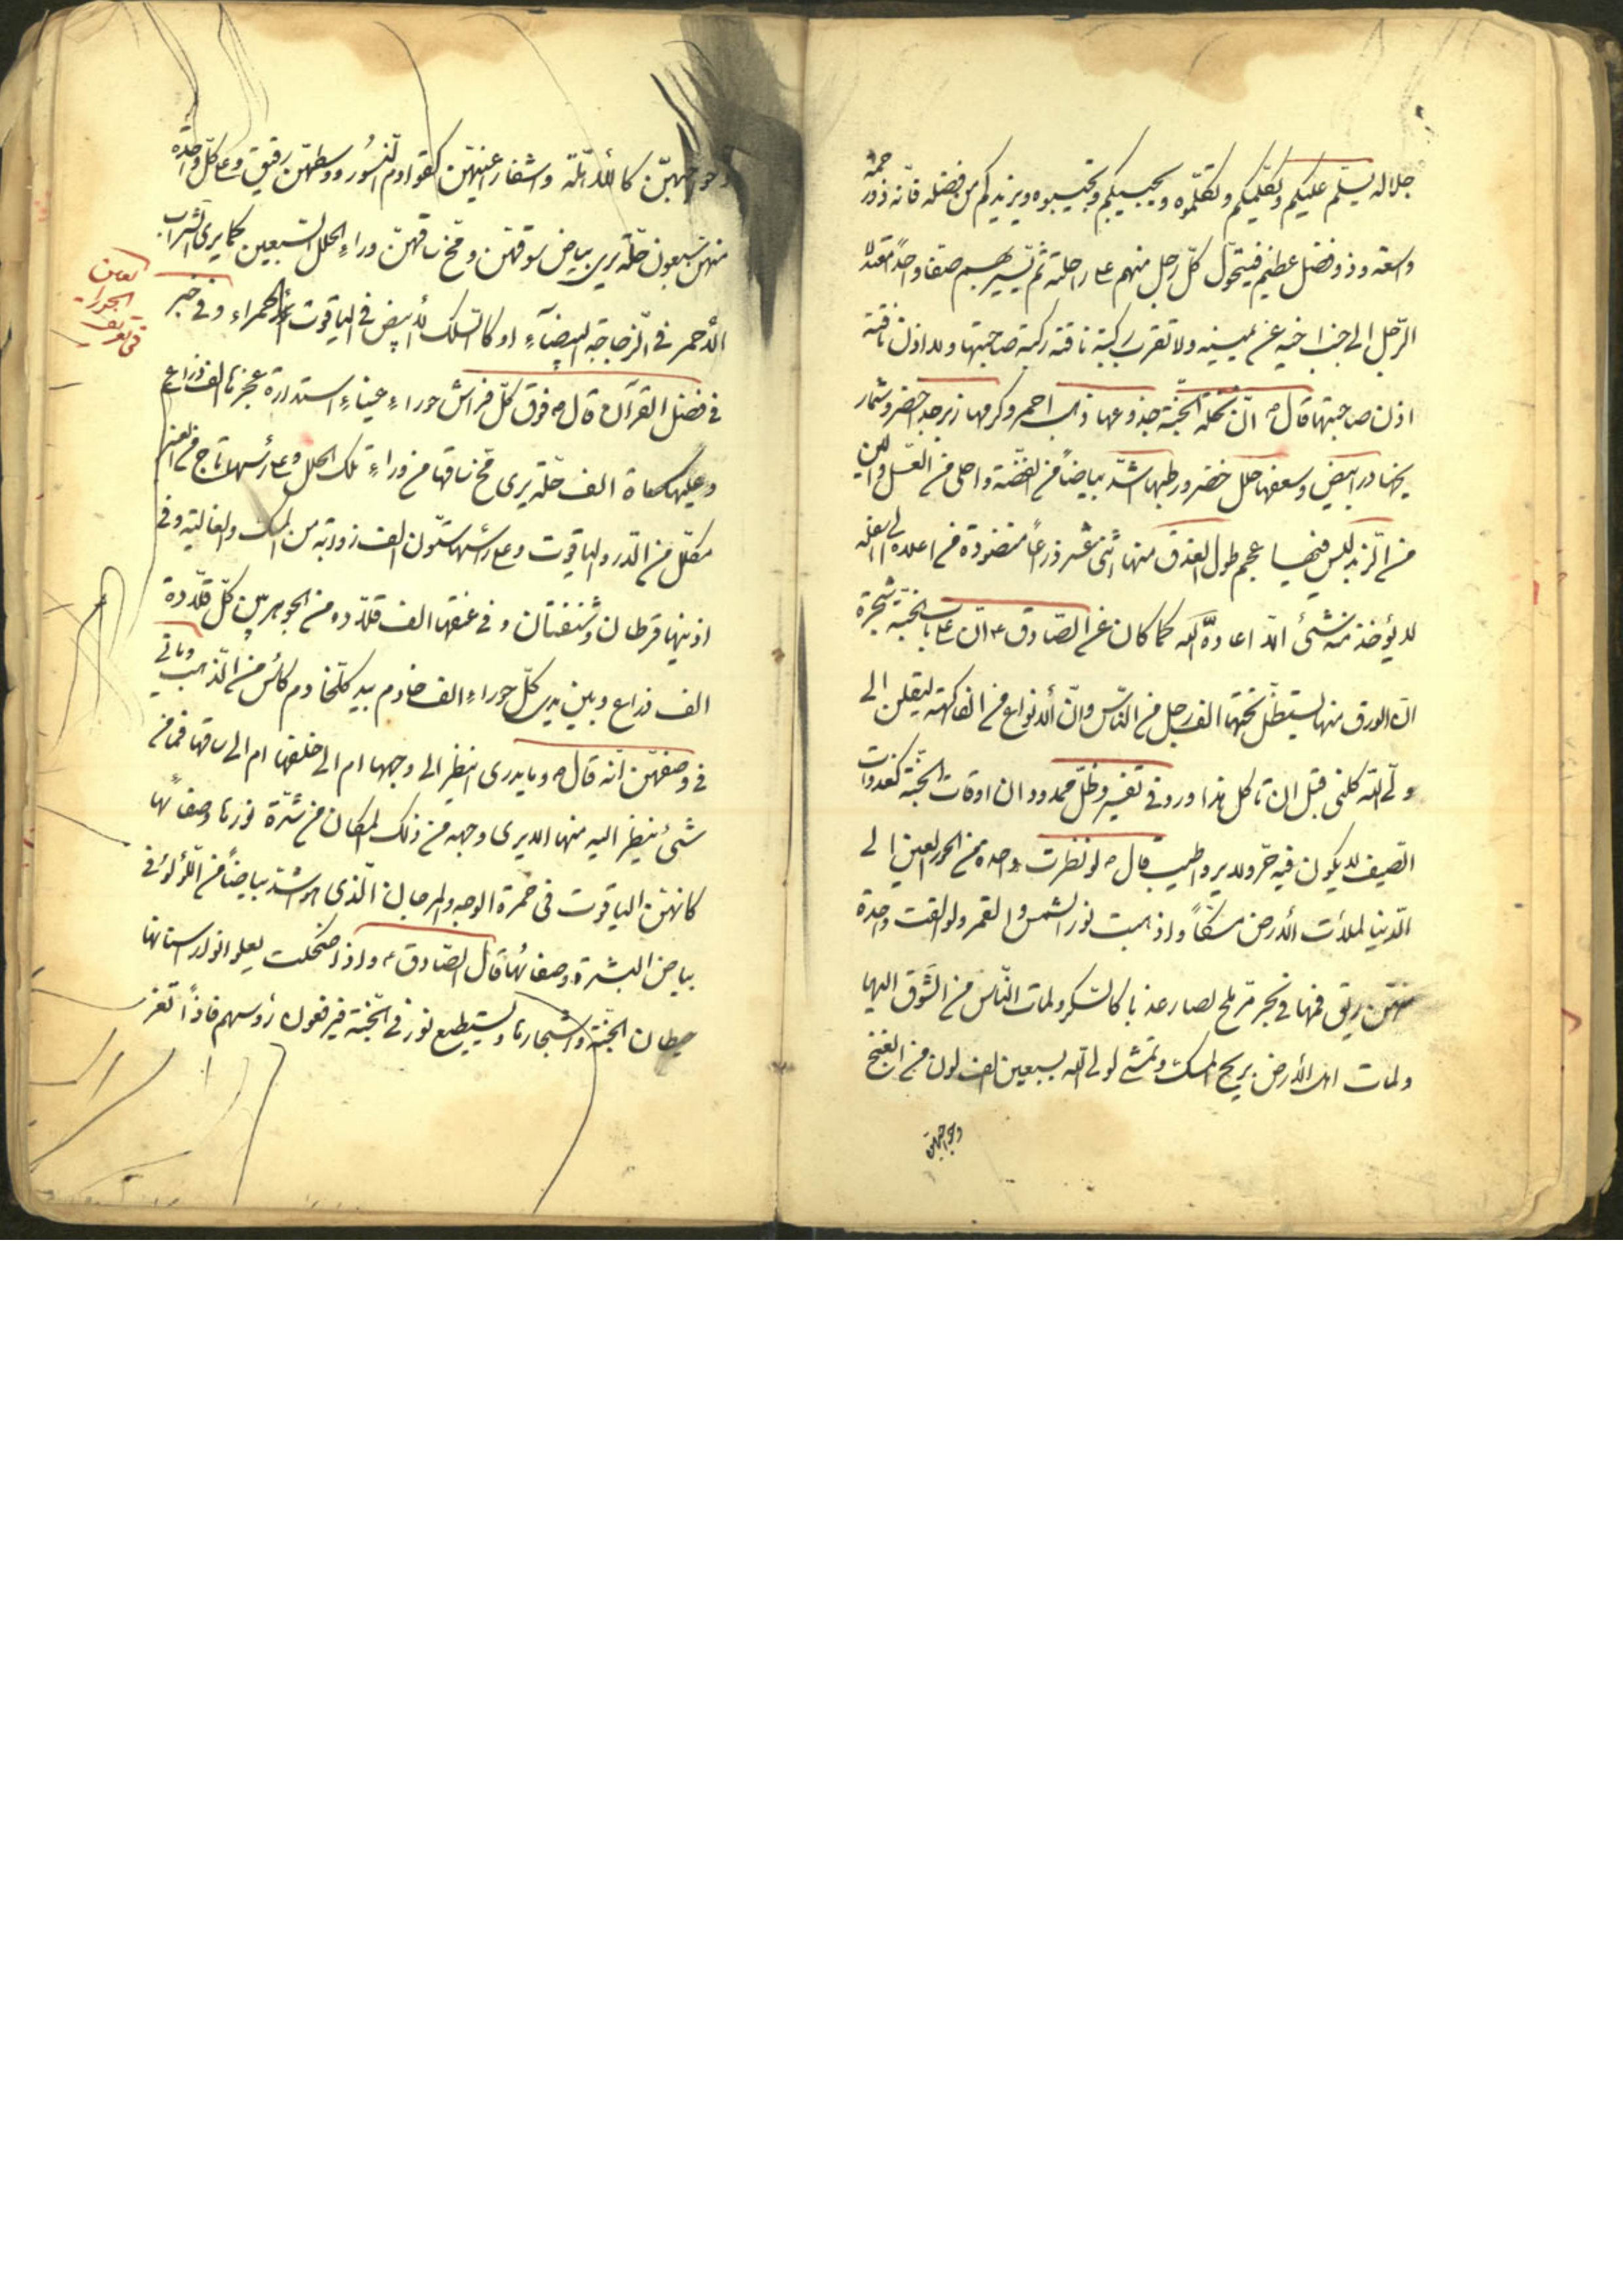 جلاله يسلّم عليكم وتكلّميكم وتكلّموه ويجيبكم وتجيبوه ويزيدكم من فضله فانّه ذو رحمة
واسعة وذو فضل عظيم فيتحوّل كلّ رجل منهم على راحلته ثم يسير بهم صفا واحدًا معتدلا
الرّجل الى جنب اخيه عن يمينه ولا تقرب ركبة ناقته ركبة صاحبتها ولا اذن ناقة
اذن صاحبتها قال ص انّ نخلة الجنّة جذوعها ذهب احمر وكربها زبرجد اخضر وشمار
يخها درّ ابيض وسعفها حلل خضر ورطبها اشدّ بياضًا من الفضّة واحلى من العسل والين
من الزبد ليس فيها عجم طول العذق منها اثنى عشر ذراعًا منضودة من اعلاه الى اسفله
لا يؤخذ منه شئ الّا اعاده الله كما كان عن الصّادق ع ان على باب الجنّة شجرة
انّ الورق منها يستظلّ تحتها الف رجل من النّاس وانّ الانواع من الفاكهة ليقلن الى
ولىّ الله كلنى قبل ان تاكل هذا ورد فى تفسير وظلّ ممدود ان اوقات الجنّة كغدوات
الصّيف لا يكون فيه حرّ ولا برد واطيب قال ص لو نظرت واحدة من الحور العين الى
الدّنيا لملأت الأرض مسكًا واذهبت نور الشمس والقمر ولو القت واحدة
منهنّ ريق فمها فى بحر مرّ ملح لصار عذبا كالسّكر ولمات النّاس من الشّوق اليها
ولمات اهل الأرض بريح المسك وتمشى لولى الله بسبعين الف لون من الغنج
وحواجبهنّ
وحواجبهنّ كالأهلّة واشفار عينهنّ كقوادم النّسور ووسطهنّ رقيق وعلى كلّ واحدة
منهنّ سبعون حلّة يرى بياض سوقهنّ ومخّ ساقهنّ وراء الحلل السبعين كما يرى الشّراب
الأحمر فى الزّجاجة البيضآء او كالسّلك الأبيض فى الياقوت الحمراء وفى خبر
فى تعريف
الحوراء
العين
فى فضل القرآن قال ص فوق كلّ فراش حوراء عيناء استدارة عجزها الف ذراع
وعليها مأة الف حلّة يرى مخّ ساقها من وراء تلك الحلل وعلى رأسها تاج من العنبر
مكلّل من الدّر والياقوت وعلى رأسها ستّون الف ذوابة من المسك والغالية وفى
اذنيها قرطان وشنفتان وفى عنقها الف قلادة من الجوهر بين كلّ قلادة
الف ذراع وبين يدى كلّ حوراء الف خادم بيد كلّ خادم كأس من الذّهب
فى وصفهنّ انّه قال ص وما يدرى اينظر الى وجهها ام الى خلفها ام الى ساقها فما من
شئ ينظر اليه منها الا يرى وجهه من ذلك المكان من شدّة نورها وصفائها
كانهنّ الياقوت فى حمرة الوجه والمرجان الّذى هو اشدّ بياضًا من اللّؤلؤ فى
بياض البشرة وصفائها قال الصّادق ع واذا ضحكت يعلو انوار اسنانها
حيطان الجنّة واشجارها ويستطيع نور فى الجنّة فيرفعون رؤسهم فاذًا تغر